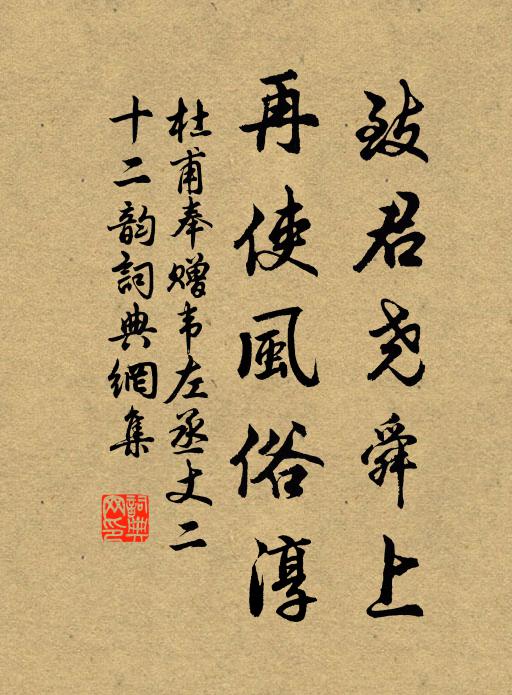 致君尧舜上
再使風俗淳
杜甫奉赠韦左丞丈二
十二韵詞典網集
詞典
网印